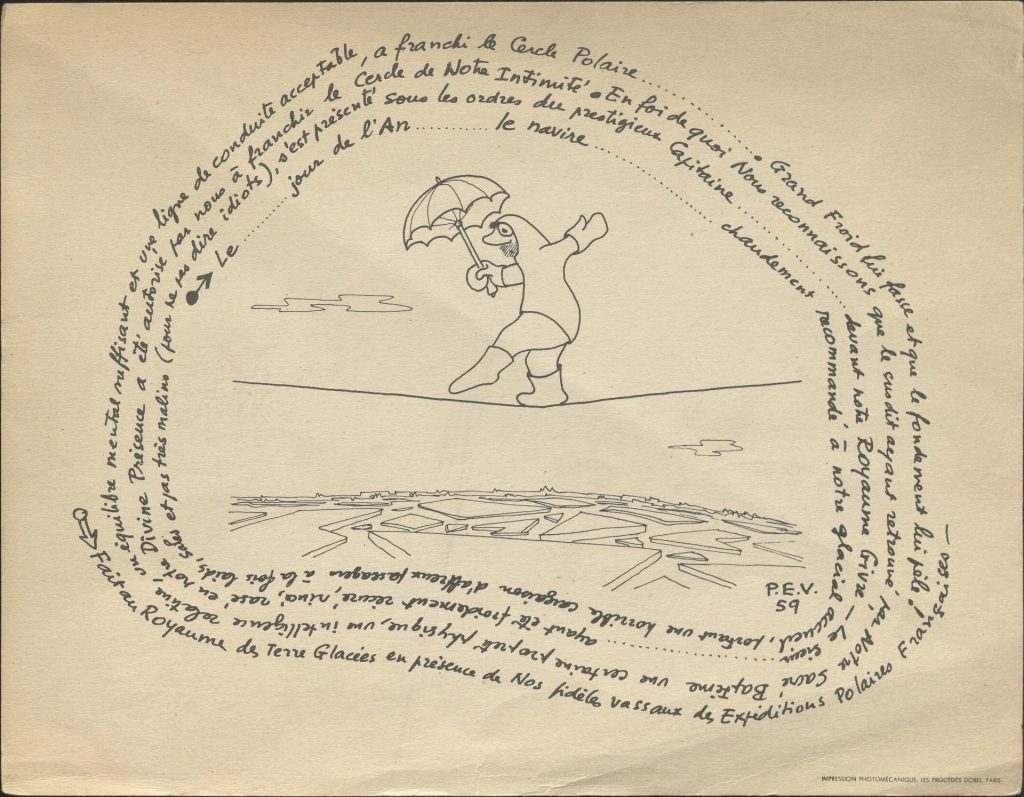 Le ........ jour de l'An ........ le navire ........ chaudement recommandé à notre glacial accueil, portant une horrible cargaison d'affreux passagers à la fois laids, sales et pas très malins (pour ne pas dire idiots), s'est présenté sous les ordres du prestigieux Capitaine ........ devant notre Royaume Givré, — Le Sieur ........ ayant été froidement récuré, rincé, rasé, en Notre Divine Présence a été autorisé par nous à franchir le Cercle de Notre Intimité • En foi de quoi Nous reconnaissons que le susdit ayant retrouvé, par Notre Sacré Baptême une certaine propreté physique, une intelligence relative, un équilibre mental suffisant et une ligne de conduite acceptable, a franchi le Cercle Polaire ........ • Grand Froid lui fasse et que le fondement lui pèle !
Fait au Royaume des Terre Glacées en présence de Nos fidèles vassaux des Expéditions Polaires Françaises —
P.E.V.
59
IMPRESSION PHOTOMÉCANIQUE, LES PROCÉDÉS DOREL, PARIS